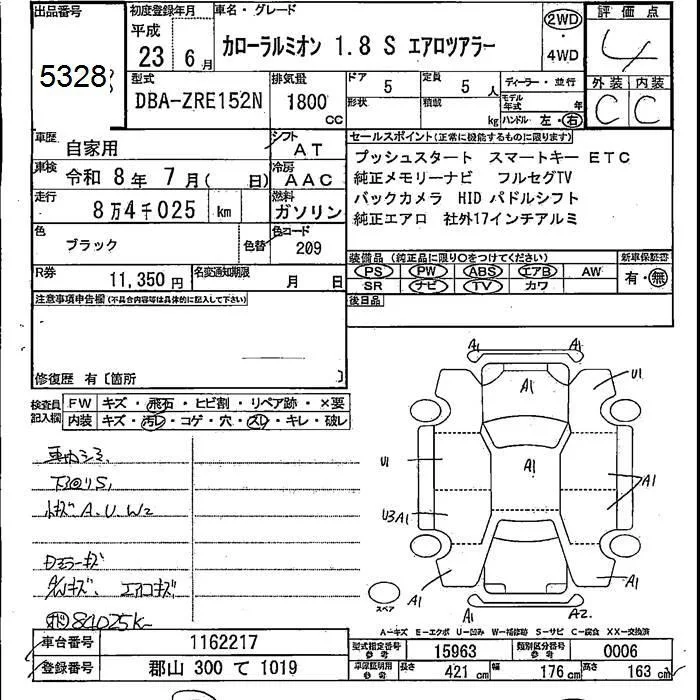 出品番号 初度登録年月 車名・グレード 評価点
平成 23年 6月 カローラルミオン 1.8 S エアロツアラー 2WD・4WD 4
5328
型式 排気量 ドア 定員 ディーラー・並行 外装 内装
DBA-ZRE152N 1800cc 5 5人 モデル年式 年 C C
形状 積載 kg ハンドル 左・右
車歴 自家用 シフト AT セールスポイント(正常に機能するものに限ります)
車検 令和 8年 7月( 日) 冷房 AAC プッシュスタート スマートキー ETC
走行 8万4千025 km 燃料 ガソリン 純正メモリーナビ フルセグTV
バックカメラ HID パドルシフト
色 ブラック 色替 色コード 209 純正エアロ 社外17インチアルミ
R券 11,350円 名変通知期限 月 日 装備品(純正品に限り○をつけてください) 新車保証書
PS PW ABS エアB AW 有・無
SR ナビ TV カワ
注意事項申告欄(不具合内容等は具体的に記入して下さい) 後日品
修復歴 有〔箇所 〕
検査員記入欄 FW キズ・飛石・ヒビ割・リペア跡・×要
内装 キズ・汚レ・コゲ・穴・スレ・キレ・破レ
A1 A1
A1 U1
U1 A1 A1
U3 A1
A1 A1
スペア A1 A2
下回りS,
キズ A.U.W2
ドアミラーキズ
A/Wキズ、エアロキズ
84025K
A-キズ E-エクボ U-凹み W-補修跡 S-サビ C-腐食 XX-交換済
車台番号 1162217 型式指定番号 参考 15963 類別区分番号 参考 0006
登録番号 郡山 300 て 1019 車庫証明用 参考 長さ 421cm 幅 176cm 高さ 163cm